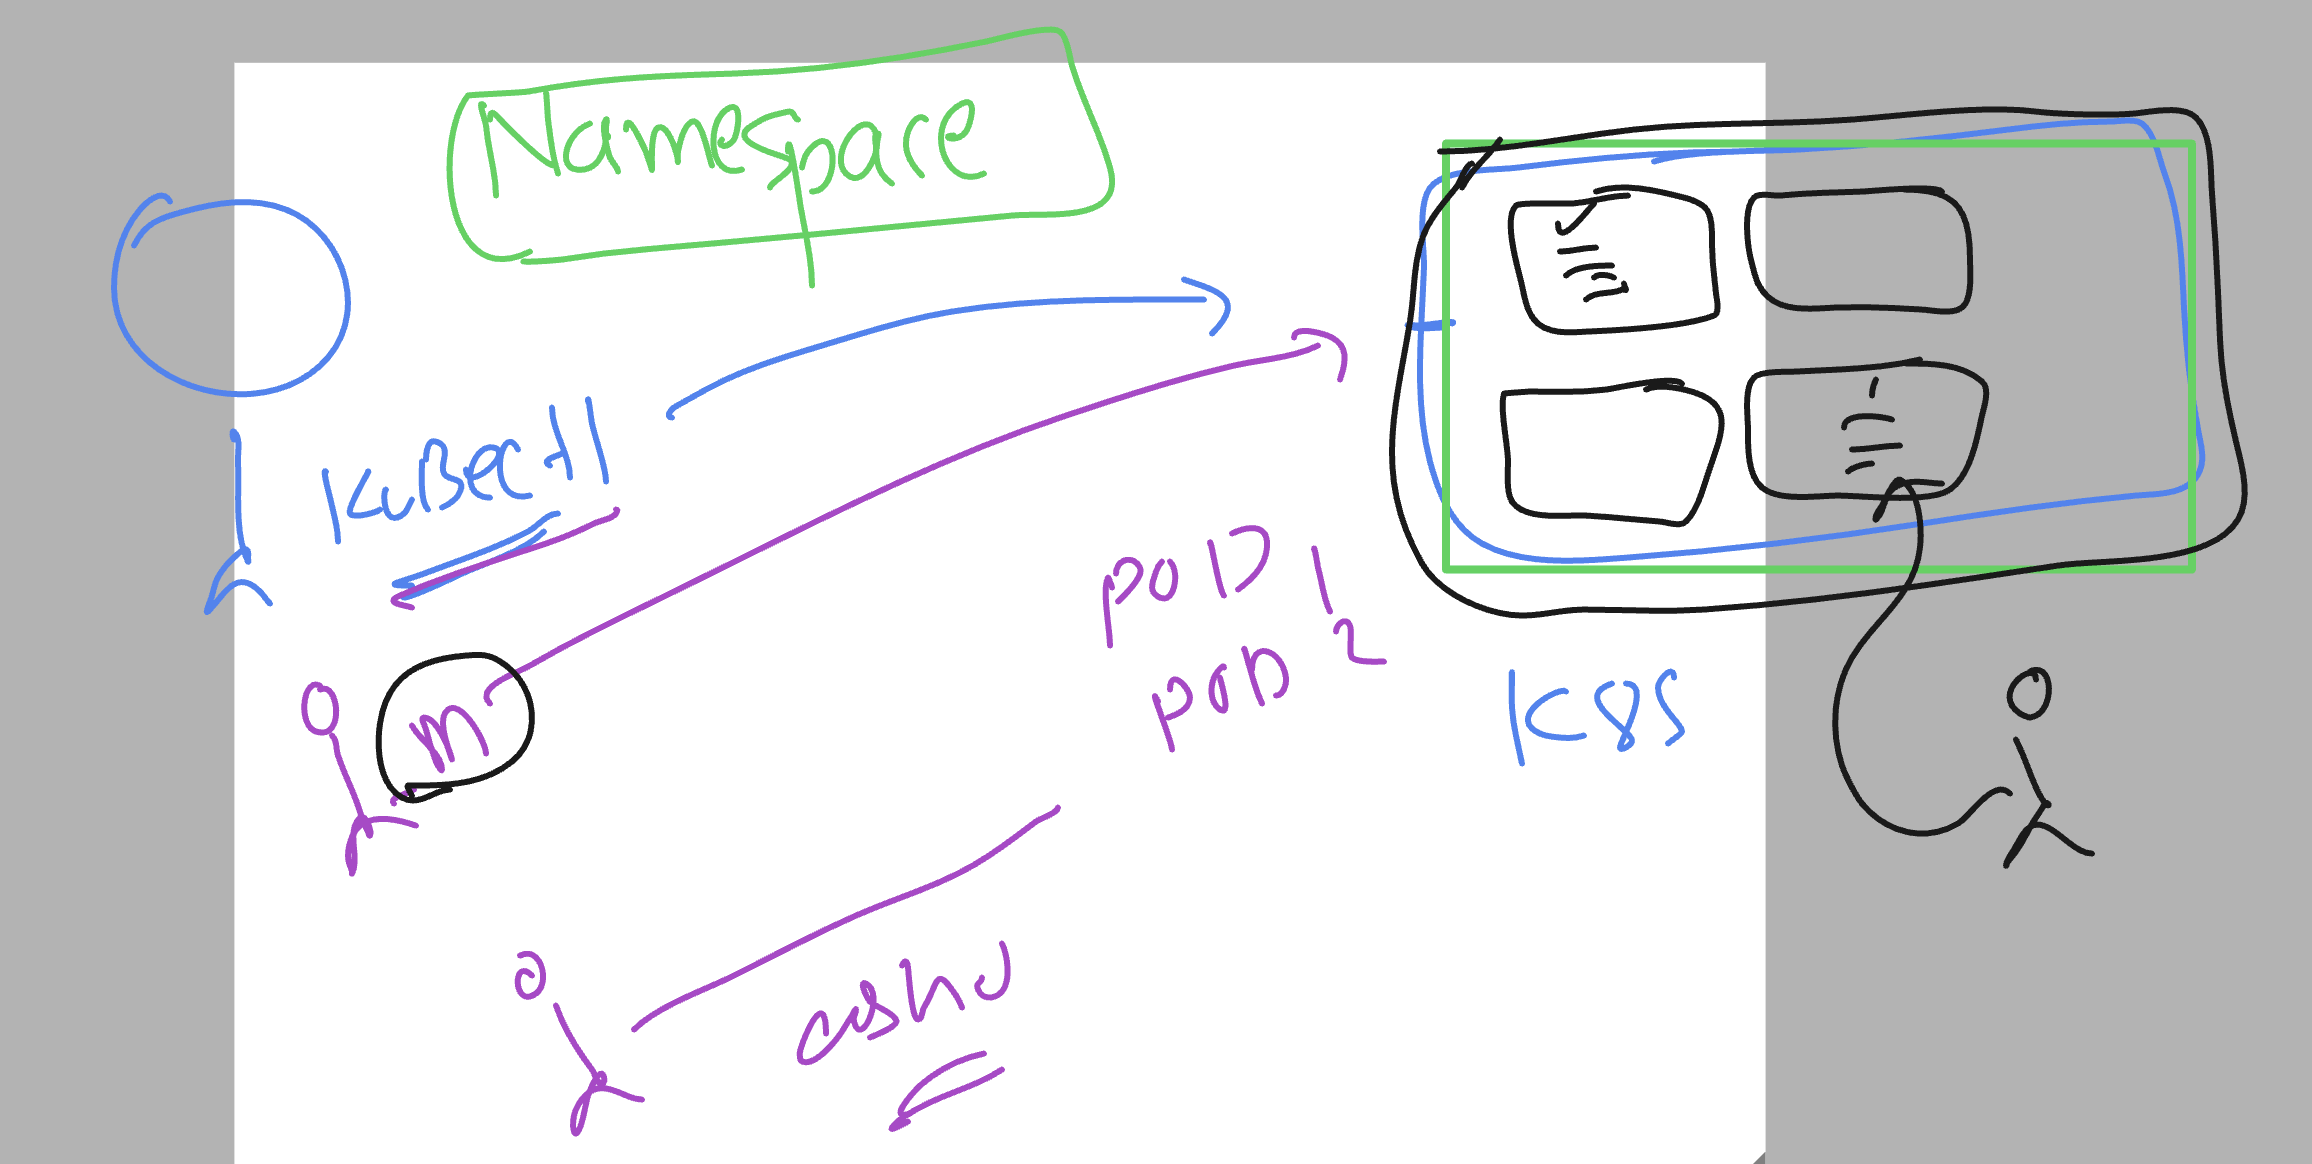 Namespace
KuBectl
POD 1
POD 2
K8S
m
ashu